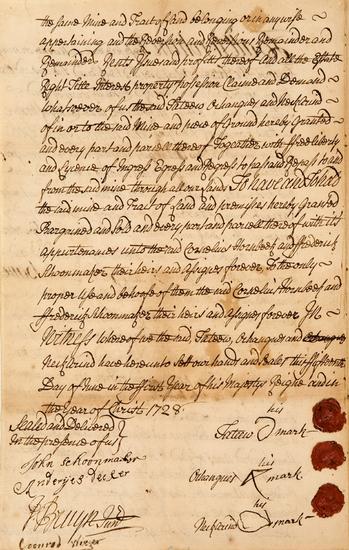 the same Mine and Tract of Land belonging or in any wise
appertaining and the Reversion and Reversions Remainder and
Remainders Rents Issues and profits thereof and all the Estate
Right Title Interest property possession Claime and Demand
whatsoever of us the said Thteew Oshanques and Neckarind
of in or to the said Mine and piece of Ground hereby Granted
and every part and parcell thereof Together with free liberty
and Lycence of Ingress Egress and Regress to pass and Repass to and
from the said mine through all our Lands To have and To hold
the said mine and Tract of Land and premises hereby Granted
Bargained and Sold and every part and parcell thereof with its
appurtenances unto the said Cornelius Hornbeek and ffrederick
Schoonmaker their heirs and assignes forever To the only
proper Use and behoofe of them the said Cornelius Hornbeek and
ffrederick Schoonmaker their heirs and assignes forever In
Witness whereof we the said Thteew, Oshanques and
have hereunto set our hands and seales this
Day of in the first Year of his Majestys Reigne and in
the Year of Christ 1728:
Sealed and Delivered
In the presence of us
John Schoonmaker
Bruyn Junr
his
Thteew mark
his
Oshanques mark
his
mark